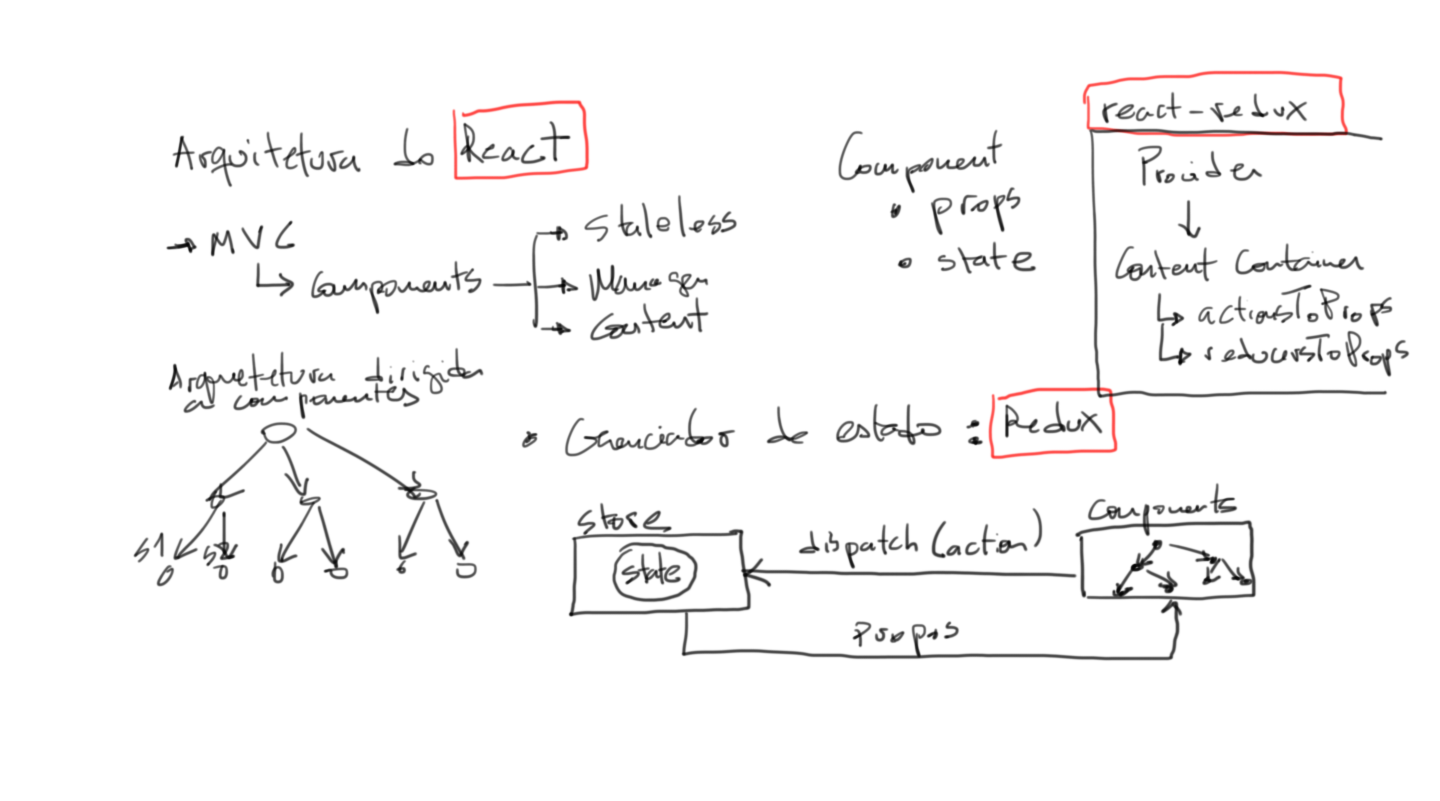 Arquitetura do React
→ MVC
↳ Components
Stateless
Manager
Content
Arquetetura dirigida
a componentes
S1
Component
• props
• state
react-redux
Provider
↓
Content Container
↳ actionsToProps
↳ reducersToProps
• Gerenciador de estado : Redux
store
state
dispatch (action)
Components
Props